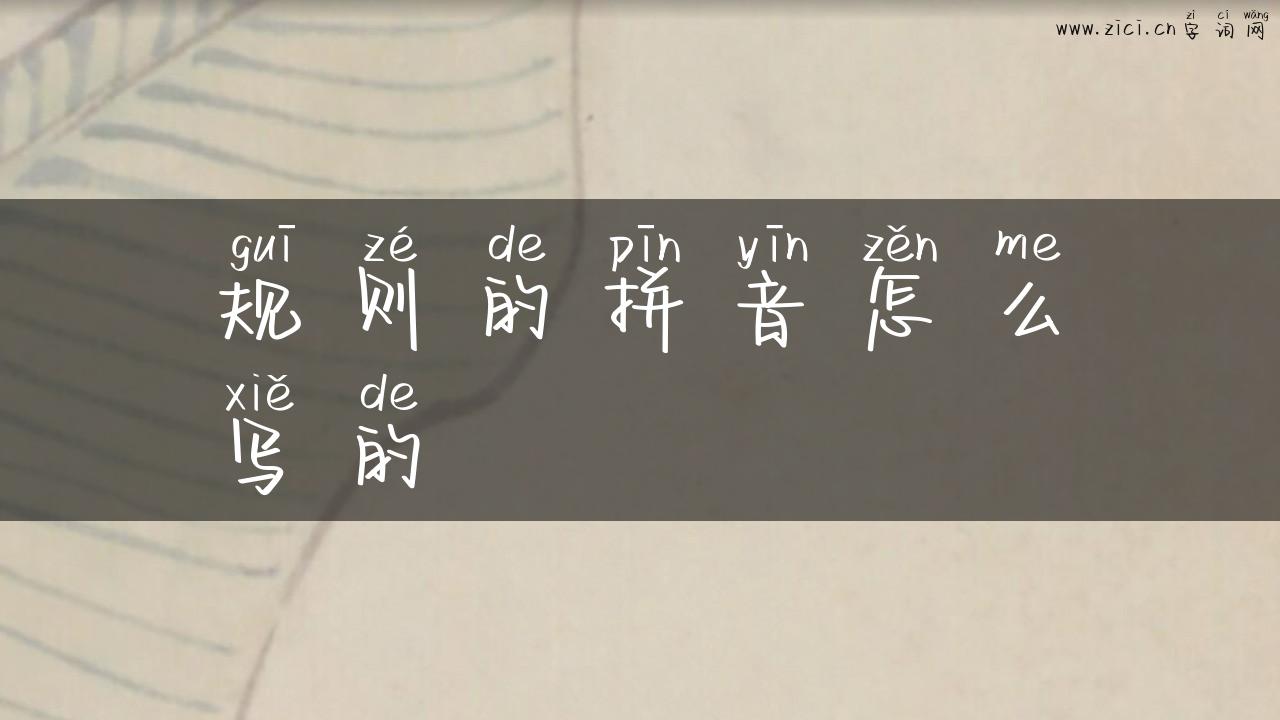 zì cí wǎng
www.zici.cn 字 词 网
guī zé de pīn yīn zěn me
规 则 的 拼 音 怎 么
xiě de
写 的